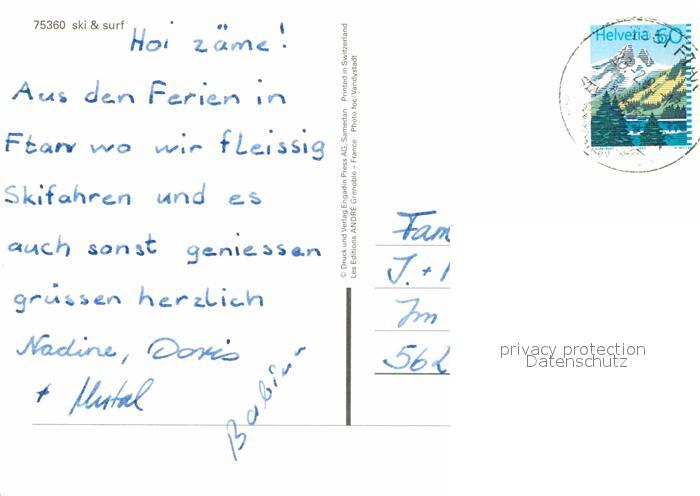 75360 ski & surf
Hoi zäme!
Aus den Ferien in
Ftan wo wir fleissig
Skifahren und es
auch sonst geniessen
grüssen herzlich
Nadine, Doris
+
© Druck und Verlag Engadin Press AG, Samedan Printed in Switzerland
Les Editions ANDRÉ Grenoble – France Photo foc/Vandystadt
Helvetia 50
Fam
J. +
Im
562
privacy protection
Datenschutz